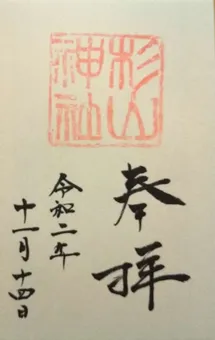 奉拝
杉山神社
令和二年
十一月十四日